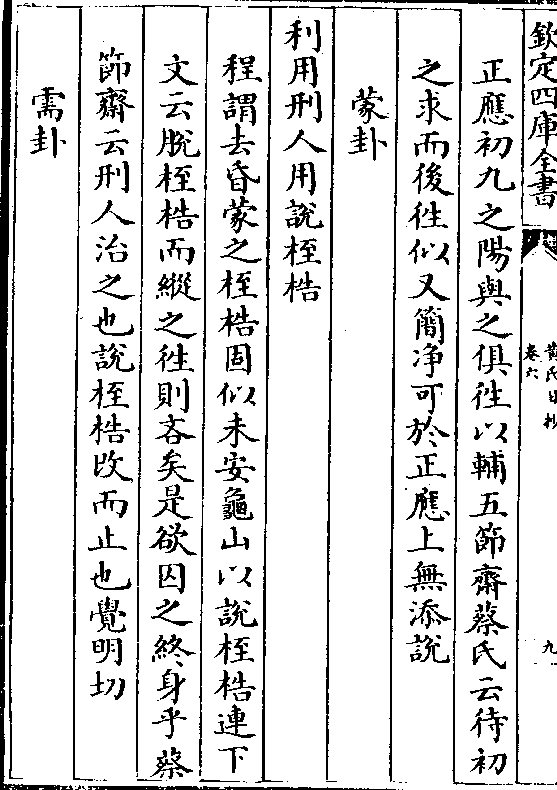 欽定四庫全書
黄氏日抄
卷六
九
正應初九之陽與之俱徃以輔五節齋蔡氏云待初
之求而後徃似又簡净可於正應上無添説
蒙卦
利用刑人用説桎梏
程謂去昏蒙之桎梏固似未安龜山以説桎梏連下
文云脱桎梏而縱之徃則吝矣是欲囚之終身乎蔡
節齋云刑人治之也説桎梏攺而止也覺明切
需卦